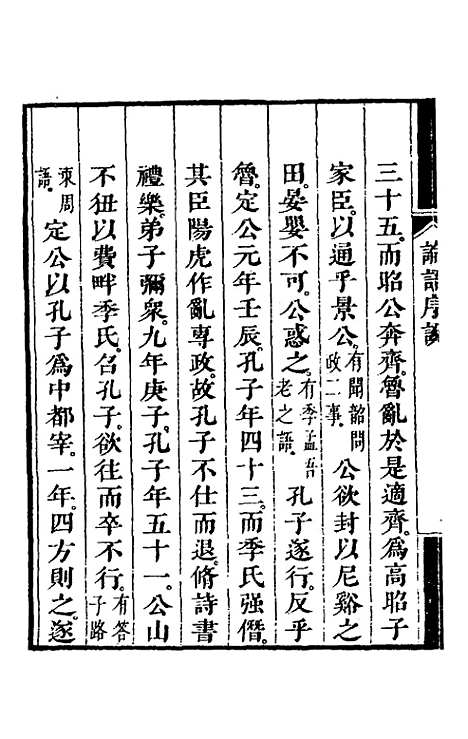 論語序說
三十五。而昭公奔齊。魯亂於是適齊。爲高昭子
家臣。以通乎景公。有聞韶問政二事。公欲封以尼谿之
田。晏嬰不可。公惑之。有季孟吾老之語。孔子遂行。反乎
魯。定公元年壬辰。孔子年四十三。而季氏强僭。
其臣陽虎作亂專政。故孔子不仕而退。脩詩書
禮樂。弟子彌衆。九年庚子。孔子年五十一。公山
不狃以費畔季氏。召孔子。欲往而卒不行。有答子路
東周語。定公以孔子爲中都宰。一年。四方則之。遂